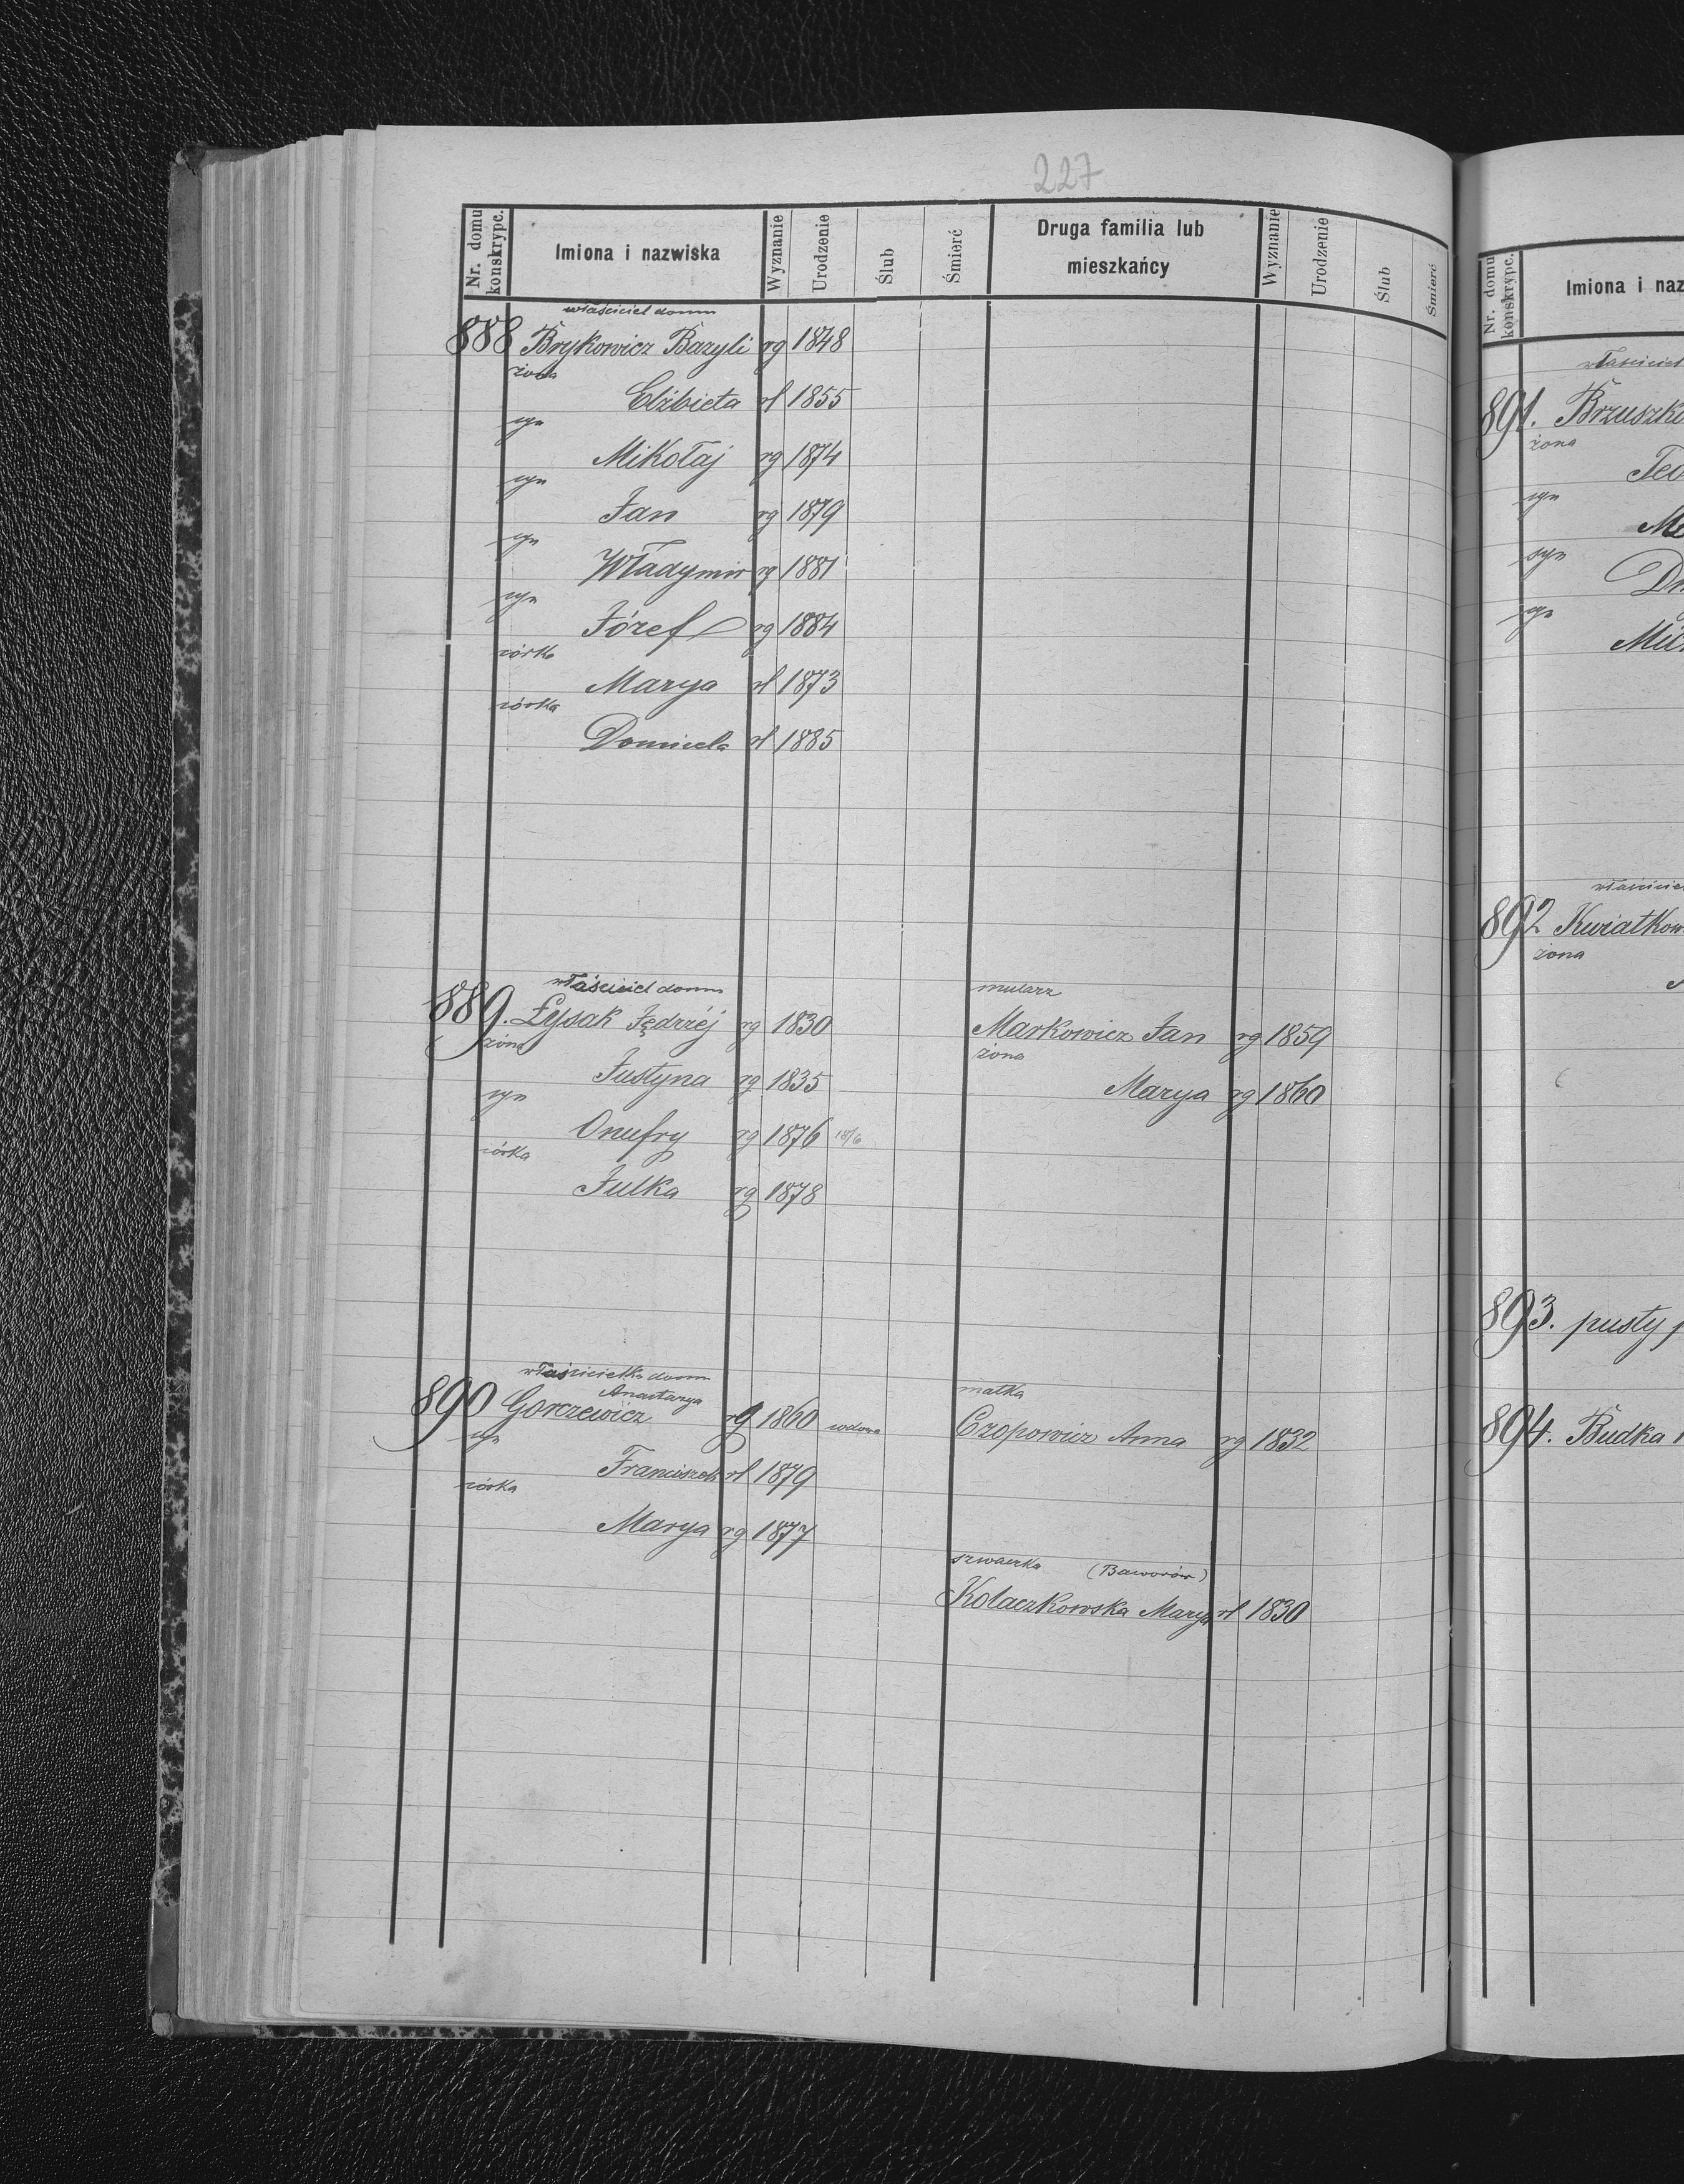 227
Nr. domu konskrypc.
Imiona i nazwiska
Wyznanie
Urodzenie
Ślub
Śmierć
Druga familia lub mieszkańcy
Wyznanie
Urodzenie
Ślub
Śmierć
właściciel domu
888 Brykowicz Bazyli rg 1848
żona
Elżbieta rł 1855
syn
Mikołaj rg 1874
syn
Jan rg 1879
syn
Władymir rg 1881
syn
Józef rg 1884
córka
Marya rł 1873
córka
Domicela rł 1885
właściciel domu
889. Łysak Jędrzéj rg 1830
żona
Justyna rg 1835
syn
Onufry rg 1876 18/6
córka
Julka rg 1878
mularz
Markowicz Jan rg 1859
żona
Marya rg 1860
właścicielka domu
Anastazya
890 Gorczewicz rg 1860 wdowa
syn
Franciszek rł 1879
córka
Marya rg 1877
matka
Czopowicz Anna rg 1832
szwaczka (Baworów)
Kolaczkowska Marya rł 1830
Nr. domu konskrypc.
Imiona i naz
właściciel
891. Brzuszki
żona
Teo
syn
syn
syn
właściciel
892 Kwiatkow
żona
893. pusty
894. Budka